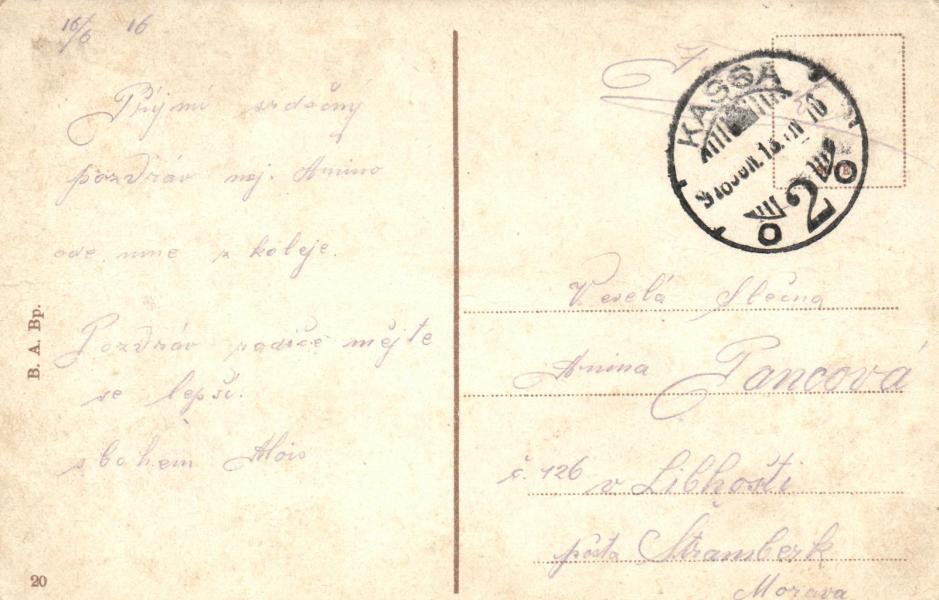 16/6 16
Přijmi srdečný
pozdráv moj. Anino
ode mne z koleje.
Pozdráv rodiče mějte
se lepši.
s bohem Alois
B. A. Bp.
20
KASSA
2
Veselá Slečna
Anina Pancová
č. 126 v Libhošti
pošta Štramberk
Morava